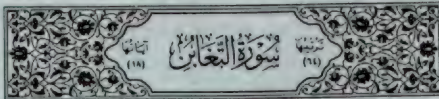 ترتيبها
(٦٤)
سُورَةُ التَّغَابُنِ
آياتها
(١٨)